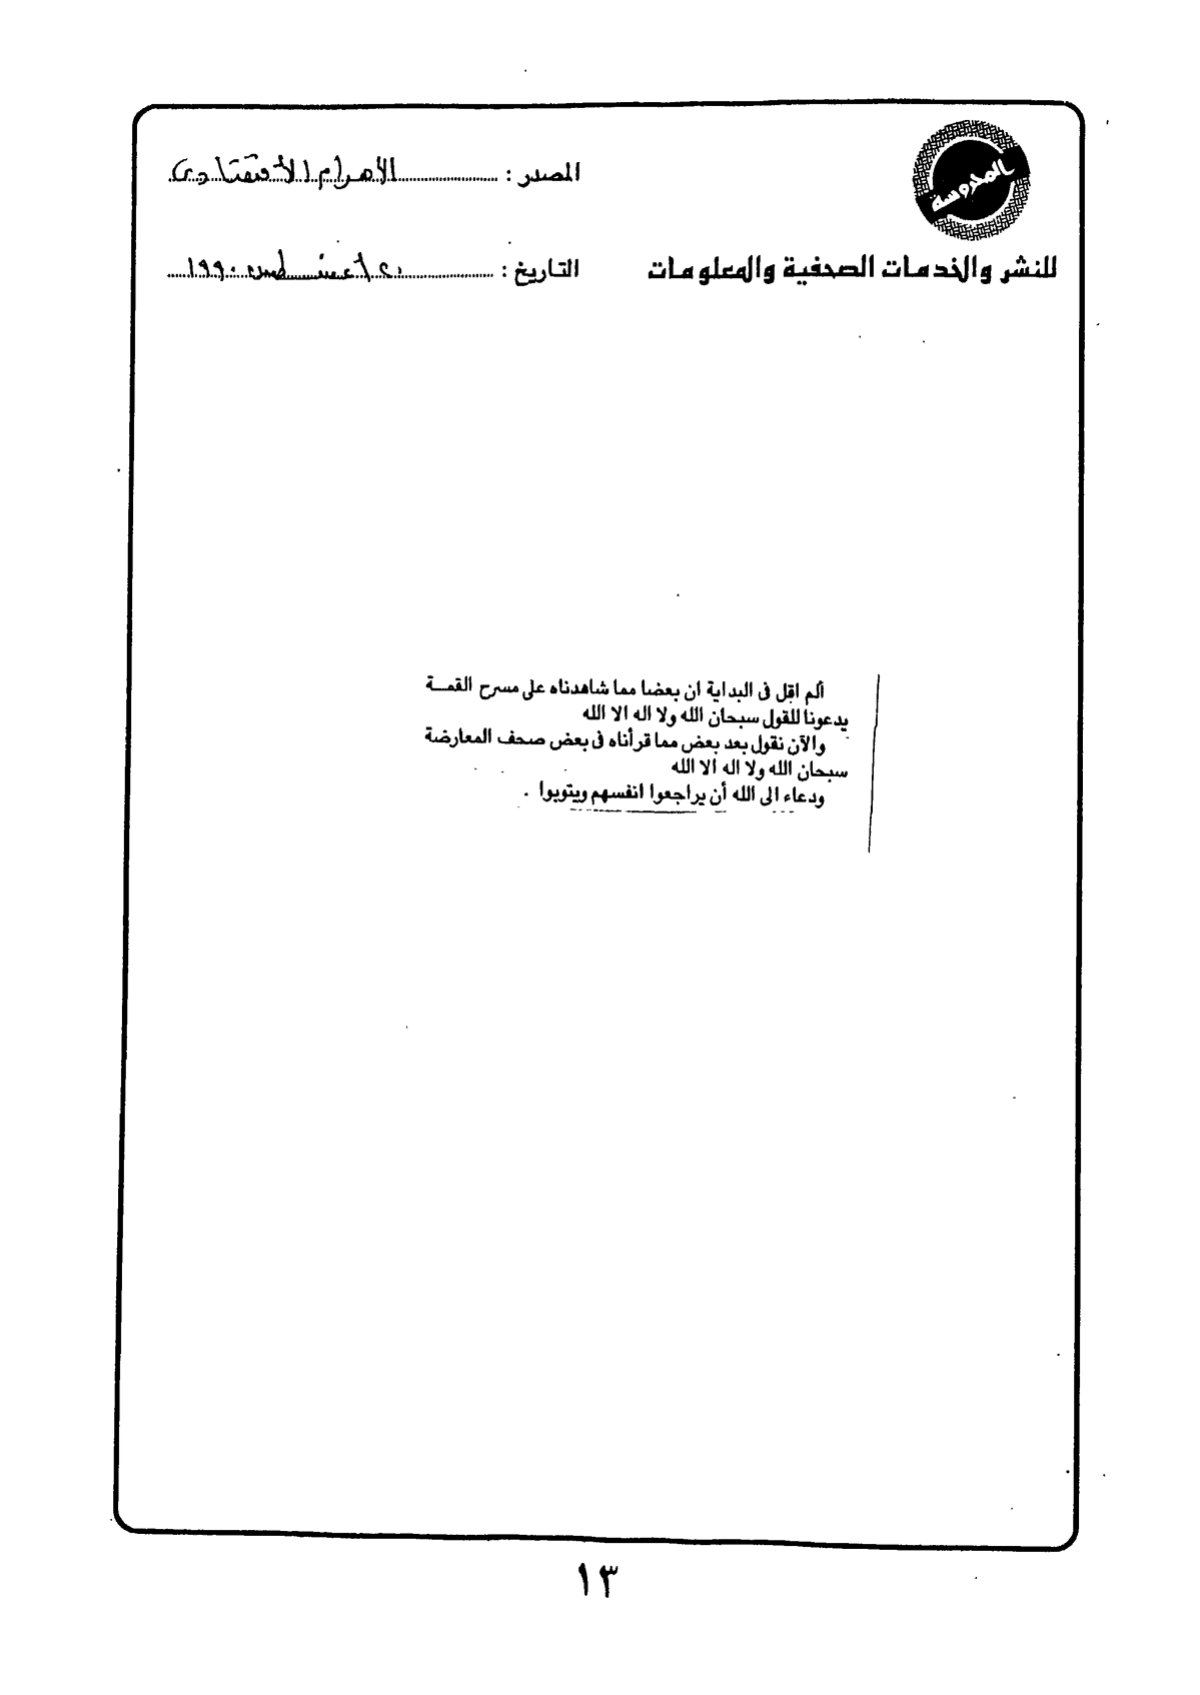 المحروسة
للنشر والخدمات الصحفية والمعلومات
المصدر : الأهرام الاقتصادى
التاريخ : ٢٠ أغسطس ١٩٩٠
ألم اقل فى البداية ان بعضا مما شاهدناه على مسرح القمـة
يدعونا للقول سبحان الله ولا اله الا الله
والآن نقول بعد بعض مما قرأناه فى بعض صحف المعارضة
سبحان الله ولا اله الا الله
ودعاء الى الله أن يراجعوا انفسهم ويتوبوا .
١٣